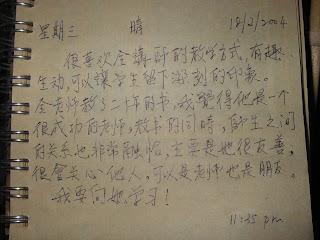 星期三 晴 18/2/2004
很喜欢全講師的教学方式，有趣、
生动，可以讓学生留下深刻的印象。
全老师教了二十年的书，我覺得他是一个
很成功的老师，教书的同時，師生之间
的关系也非常融恰，主要是她很友善，
很會关心他人，可以是老师也是朋友。
我要向她学习！
11:35 pm